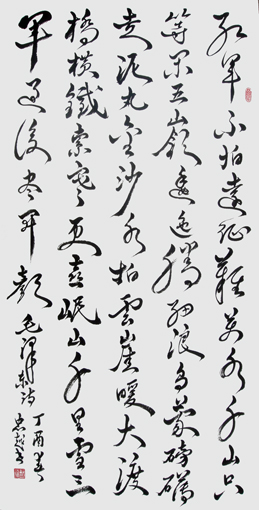 红军不怕远征难萬水千山只
等闲五岭逶迤腾细浪乌蒙磅礴
走泥丸金沙水拍雲崖暖大渡
橋橫鐵索寒更喜岷山千里雪三
军过後尽开颜 毛泽东诗
丁酉 忠超书